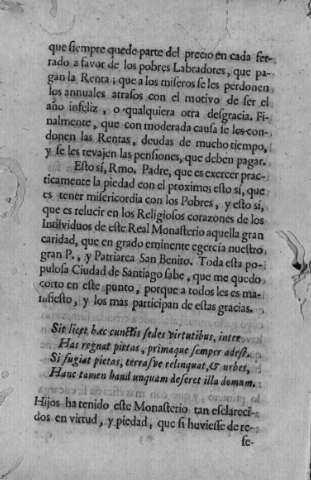 que siempre quede parte del precio en cada fer-
rado a favor de los pobres Labradores, que pa-
gan la Renta; que a los miseros se les perdonen
los annuales atrasos con el motivo de ser el
año infeliz, o qualquiera otra desgracia. Fi-
nalmente, que con moderada causa se les con-
donen las Rentas, deudas de mucho tiempo,
y se les revajen las pensiones, que deben pagar.
Esto sí, Rmo. Padre, que es exercer prac-
ticamente la piedad con el proximo: esto sí, que
es tener misericordia con los Pobres, y esto sí,
que es relucir en los Religiosos corazones de los
Individuos de este Real Monasterio aquella gran
caridad, que en grado eminente egercía nuestro
gran P., y Patriarca San Benito. Toda esta po-
pulosa Ciudad de Santiago sabe, que me quedo
corto en este punto, porque a todos les es ma-
nifiesto, y los mas participan de estas gracias.
Sit licet hæc cunctis sedes virtutibus, intre
Has regnat pietas, primaque semper adest.
Si fugiat pietas, terrasve relinquat, & urbes,
Hanc tamen haud unquam deseret illa domum.
Hijos ha tenido este Monasterio tan esclareci-
dos en virtud, y piedad, que si huviesse de re-
fe-